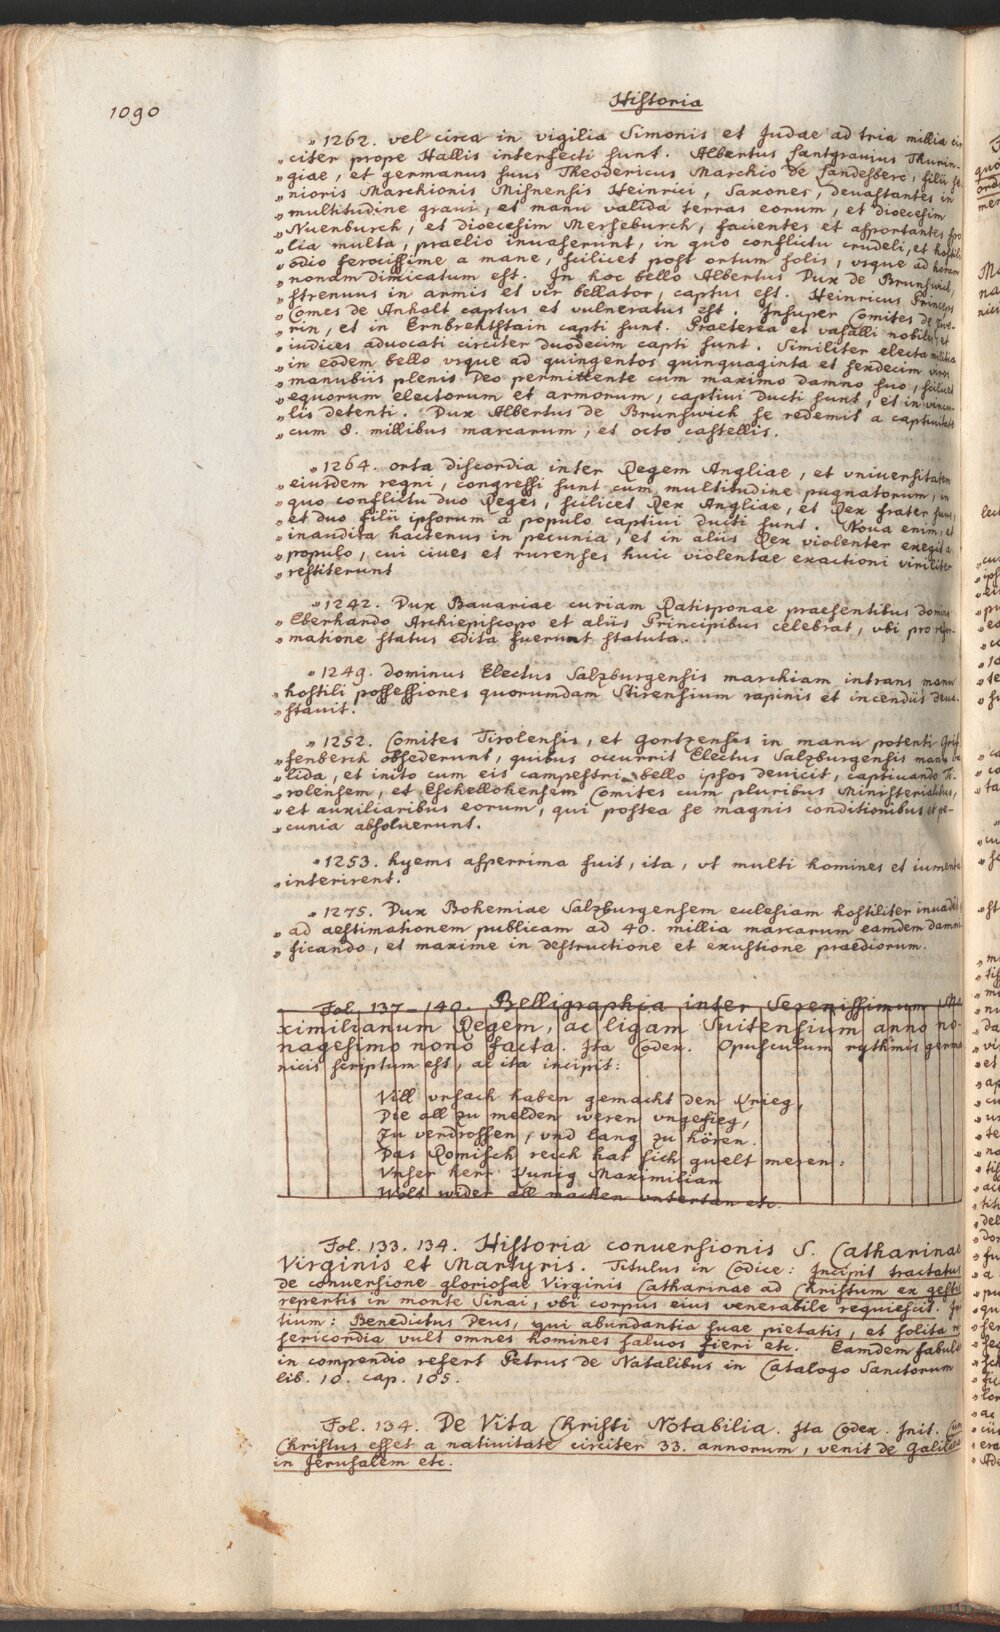 1090
Historia
„ 1262. vel circa in vigilia Simonis et Judae ad tria millia cir
„ citer prope Hallis interfecti sunt. Albertus Lantgravius Thurin-
„ giae, et germanus suus Theodericus Marchio de Landesberc, filii se
„ nioris Marchionis Misnensis Heinrici, Saxones, deuastantes in
„ multitudine graui, et manu valida terras eorum, et dioecesim
„ Nuenburch, et dioecesim Merseburch, facientes et asportantes
„ lia multa, praelio inuaserunt, in quo conflictu crudeli, et hostili
„ odio ferocissime a mane, scilicet post ortum solis, vsque ad horam
„ nonam dimicatum est. In hoc bello Albertus Dux de Brunswich,
„ strenuus in armis et vir bellator, captus est. Heinricus Princeps
„ Comes de Anhalt captus et vulneratus est. Insuper Comites de Zwe-
„ rin, et in Ernbrehtstain capti sunt. Praeterea et vasalli nobiles, et
„ iudices aduocati circiter duodecim capti sunt. Similiter electa militia
„ in eodem bello vsque ad quingentos quinquaginta et sexdecim viros
„ manubiis plenis Deo permittente cum maximo damno suo, scilicet
„ equorum electorum et armorum, captiui ducti sunt, et in vincu-
„ lis detenti. Dux Albertus de Brunswick se redemit a captiuitate
„ cum 8. millibus marcarum, et octo castellis.
„ 1264. orta discordia inter Regem Angliae, et vniuersitatem
„ eiusdem regni, congressi sunt cum multitudine pugnatorum, in
„ quo conflictu duo Reges, scilicet Rex Angliae, et Rex frater suus,
„ et duo filii ipsorum a populo captiui ducti sunt. Noua enim, et
„ inaudita hactenus in pecunia, et in aliis Rex violenter exegit a
„ populo, cui ciues et rurenses huic violentae exactioni viriliter
„ restiterunt
„ 1242. Dux Bauariae curiam Ratisponae praesentibus domino
„ Eberhardo Archiepiscopo et aliis Principibus celebrat, vbi pro refor-
„ matione status edita fuerunt statuta.
„ 1249. dominus Electus Salzburgensis marchiam intrans manu
„ hostili possessiones quorumdam Stirensium rapinis et incendiis deua-
„ stauit.
„ 1252. Comites Tirolensis, et Gortzensis in manu potenti Grif
„ fenberch obsederunt, quibus occurrit Electus Salzburgensis manu va
„ lida, et inito cum eis campestri bello ipsos deuicit, captiuando Ti-
„ rolensem, et Eschellohensem Comites cum pluribus Ministerialibus,
„ et auxiliaribus eorum, qui postea se magnis conditionibus et pe-
„ cunia absoluerunt.
„ 1253. hyems asperrima fuit, ita, vt multi homines et iumenta
„ interirent.
„ 1275. Dux Bohemiae Salzburgensem ecclesiam hostiliter inuadit
„ ad aestimationem publicam ad 40. millia marcarum eamdem damni
„ ficando, et maxime in destructione et exustione praediorum.
Fol. 137-140. Belligraphia inter Serenissimum Ma
ximilianum Regem, ac ligam Suitensium anno no-
nagesimo nono facta. Ita Codex. Opusculum rythmis germa
nicis scriptum est, ac ita incipit:
Vill vrsach haben gemacht den Krieg,
Die all zu melden weren vngefieg,
Zu verdrossen, vnd lang zu hören.
Das Romisch reich hat sich quelt meren:
Vnser herr Kunig Maximilian
Wolt wider all machen vntertan etc.
Fol. 133. 134. Historia conuersionis S. Catharinae
Virginis et Martyris. Titulus in Codice: Incipit tractatus
de conuersione gloriosae Virginis Catharinae ad Christum ex gestis
repertis in monte Sinai, vbi corpus eius venerabile requiescit. In
itium: Benedictus Deus, qui abundantia suae pietatis, et solita mi
sericordia vult omnes homines saluos fieri etc. Eamdem fabulam
in compendio refert Petrus de Natalibus in Catalogo Sanctorum
lib. 10. cap. 105.
Fol. 134. De Vita Christi Notabilia. Ita Codex. Init. Cum
Christus esset a natiuitate circiter 33. annorum, venit de Galilaea
in Jerusalem etc.